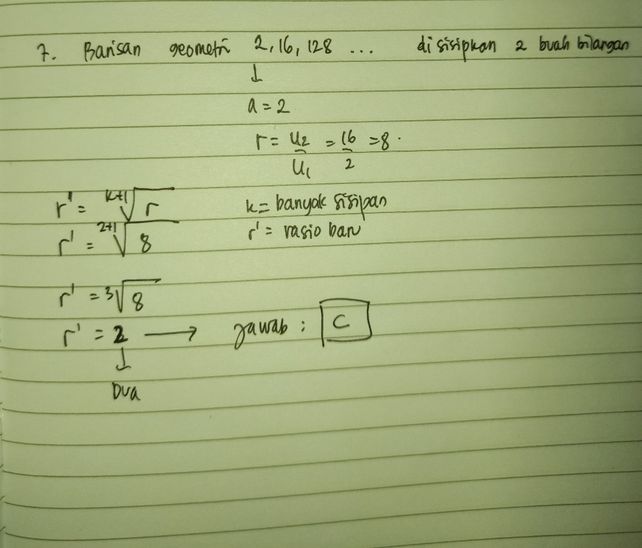 7. Barisan geometri 2, 16, 128 ... disisipkan 2 buah bilangan
↓
a = 2
r = U2/U1 = 16/2 = 8.
r' = ᵏ⁺¹√r
k = banyak sisipan
r' = ²⁺¹√8
r' = rasio baru
r' = ³√8
r' = 2 → Jawab : C
↓
Dua